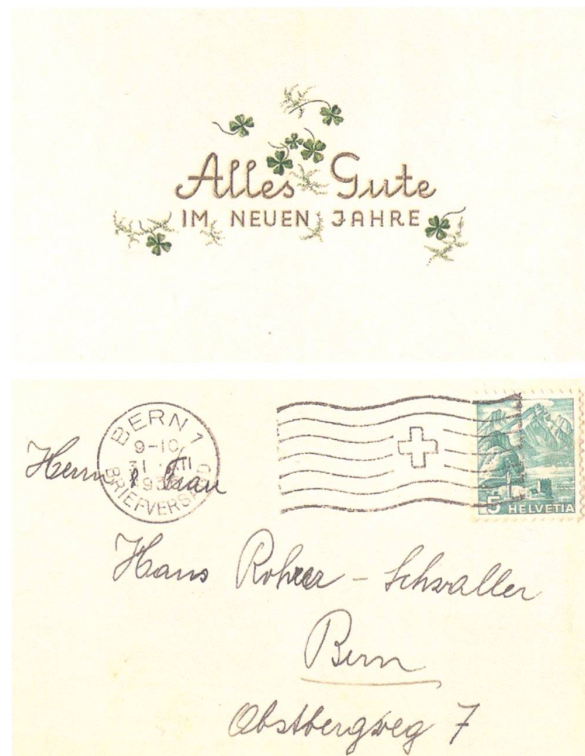 Alles Gute
IM NEUEN JAHRE
BERN 1
9-10
31 XII
BRIEFVERSAND
5 HELVETIA
Herrn & Frau
Hans Rohrer - Schwaller
Bern
Obstbergweg 7